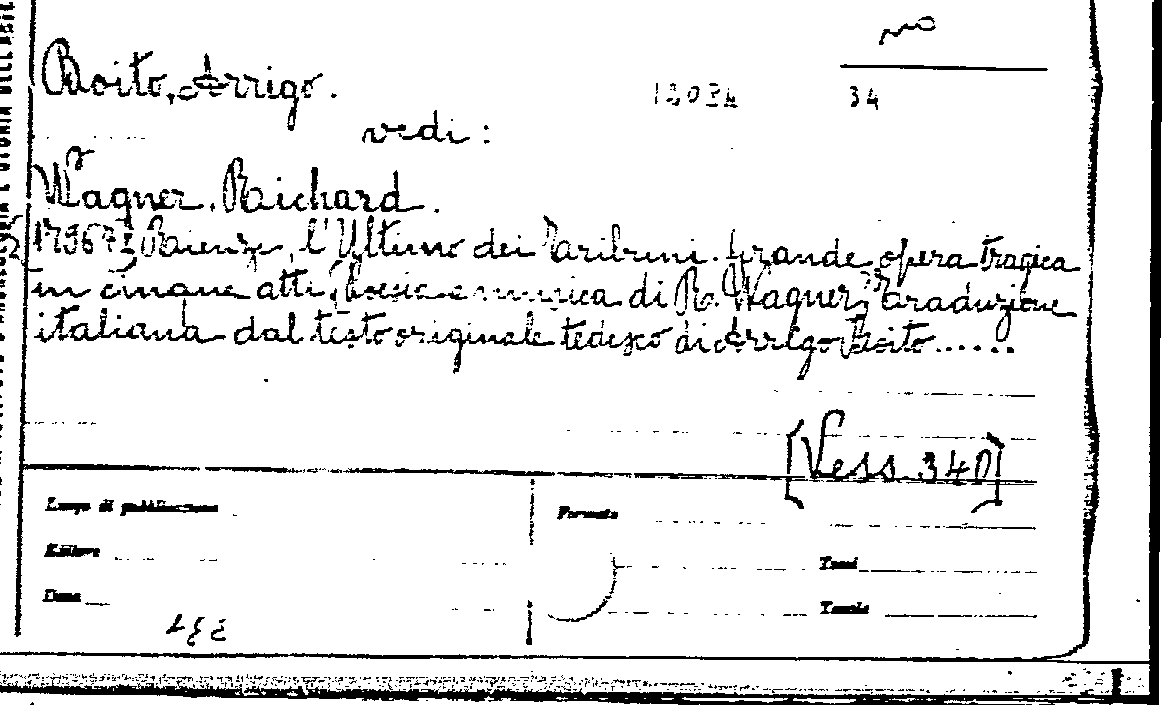 34
Boito, Arrigo.
vedi:
Wagner, Richard.
Rienzi, l'Ultimo dei Tribuni. Grande opera tragica
in cinque atti. Poesia e musica di R. Wagner; Traduzione
italiana dal testo originale tedesco di Arrigo Boito......
[Vess. 340]
Luogo di pubblicazione
Formato
Editore
Tomi
Data
Tavole